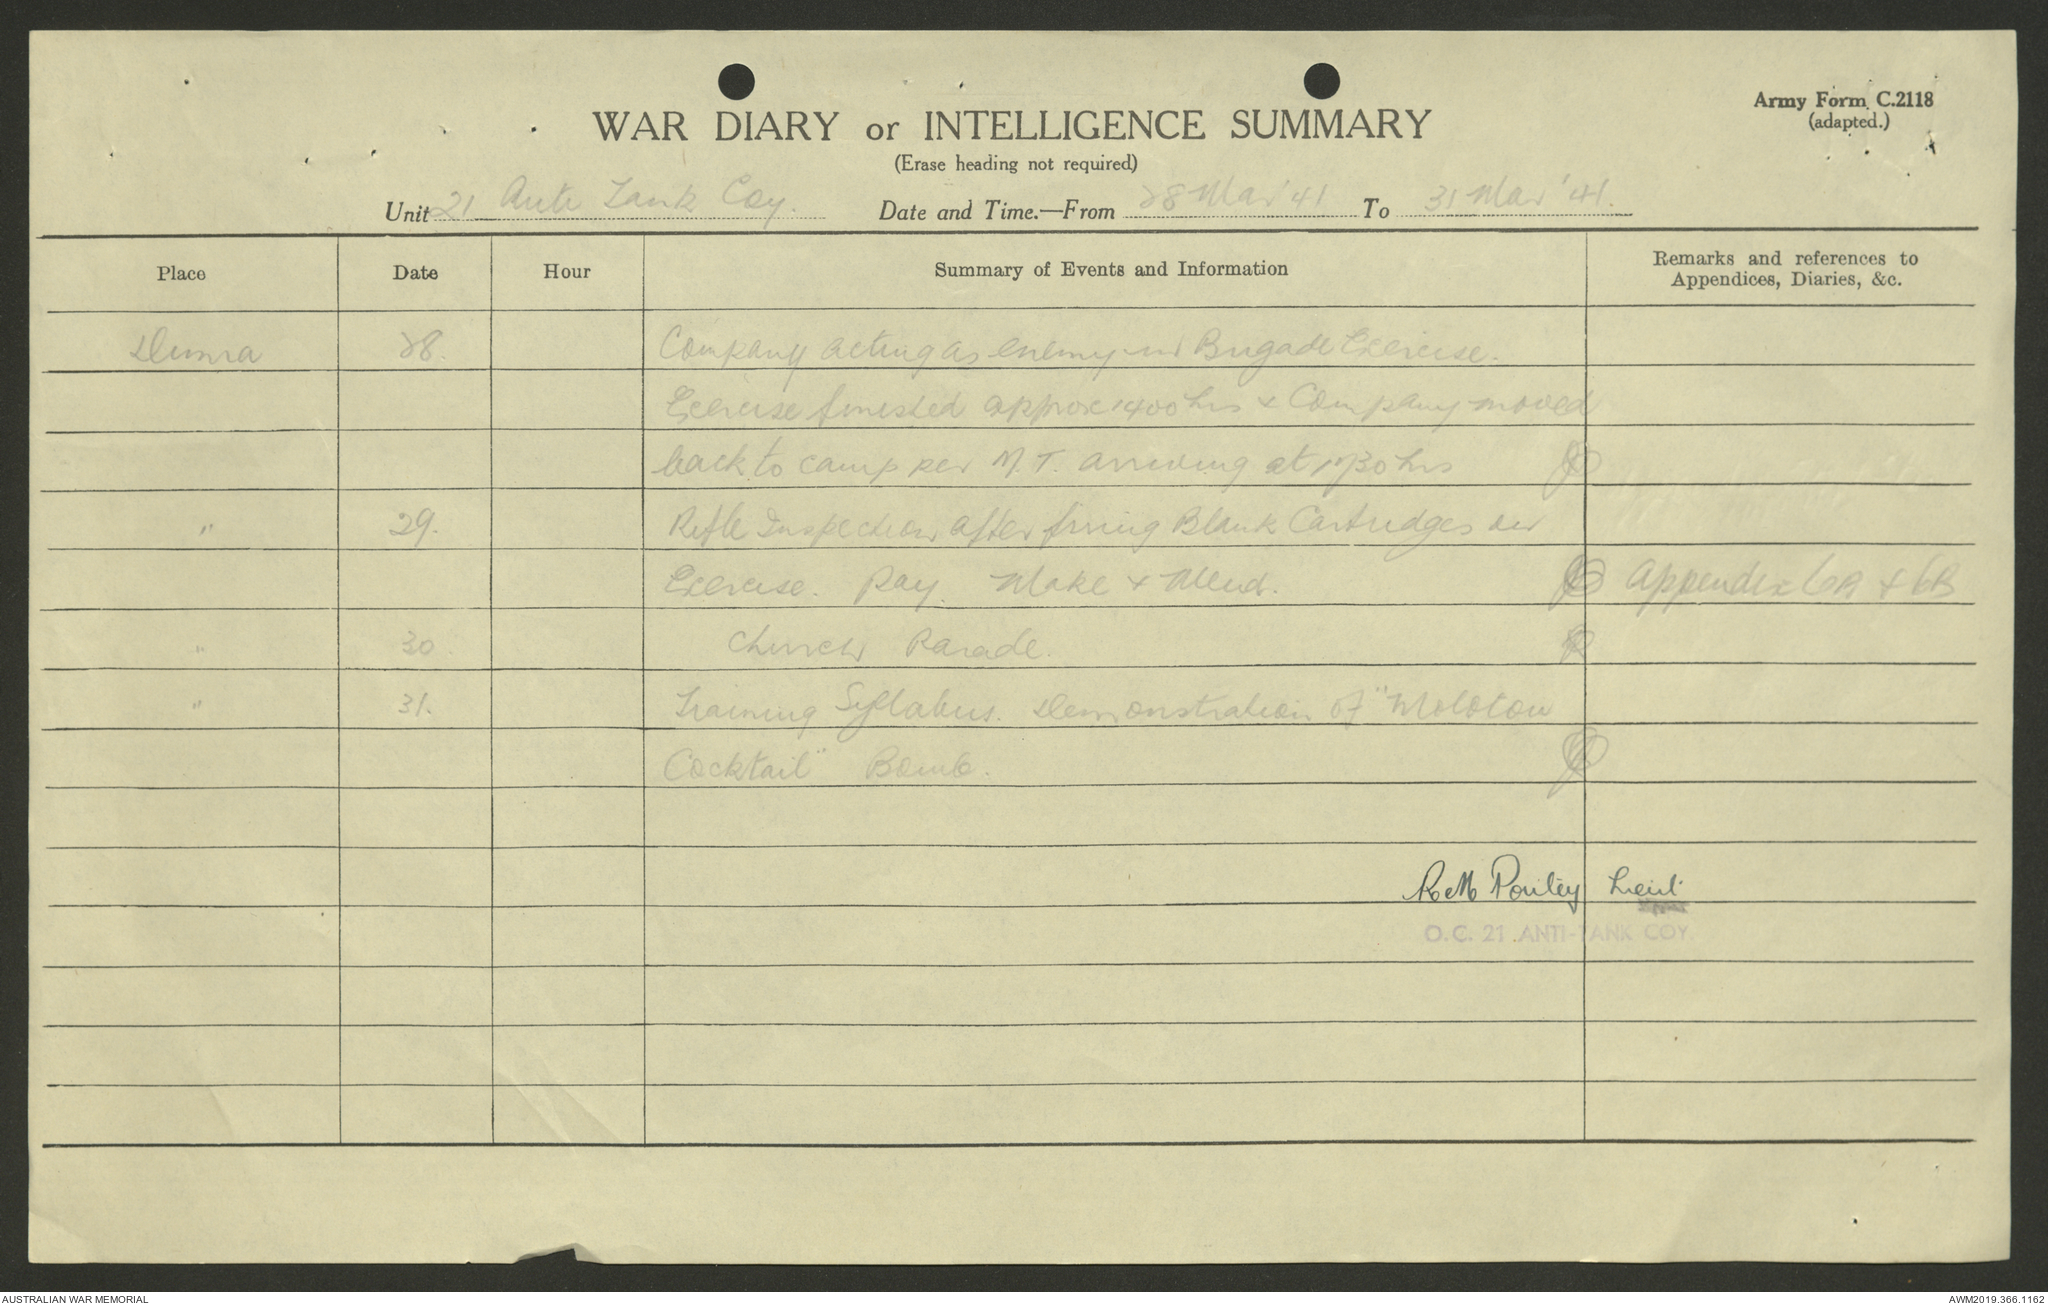 Army Form C.2118
(adapted.)
WAR DIARY or INTELLIGENCE SUMMARY
(Erase heading not required)
Unit 21 Anti Tank Coy. Date and Time.—From 28 Mar '41 To 31 Mar '41.
Place Date Hour Summary of Events and Information Remarks and references to
Appendices, Diaries, &c.
Dimra 28. Company acting as enemy in Brigade Exercise.
Exercise finished approx 1400 hrs & Company moved
back to camp per M.T. arriving at 1730 hrs
" 29. Rifle Inspection after firing Blank Cartridges in
Exercise. Pay. Make & Mend. Appendix 6A & 6B
" 30 Church Parade.
" 31. Training Syllabus. Demonstration of "Molotow
Cocktail" Bomb.
Lieut
O.C. 21 ANTI-TANK COY.
AUSTRALIAN WAR MEMORIAL AWM2019.366.1162